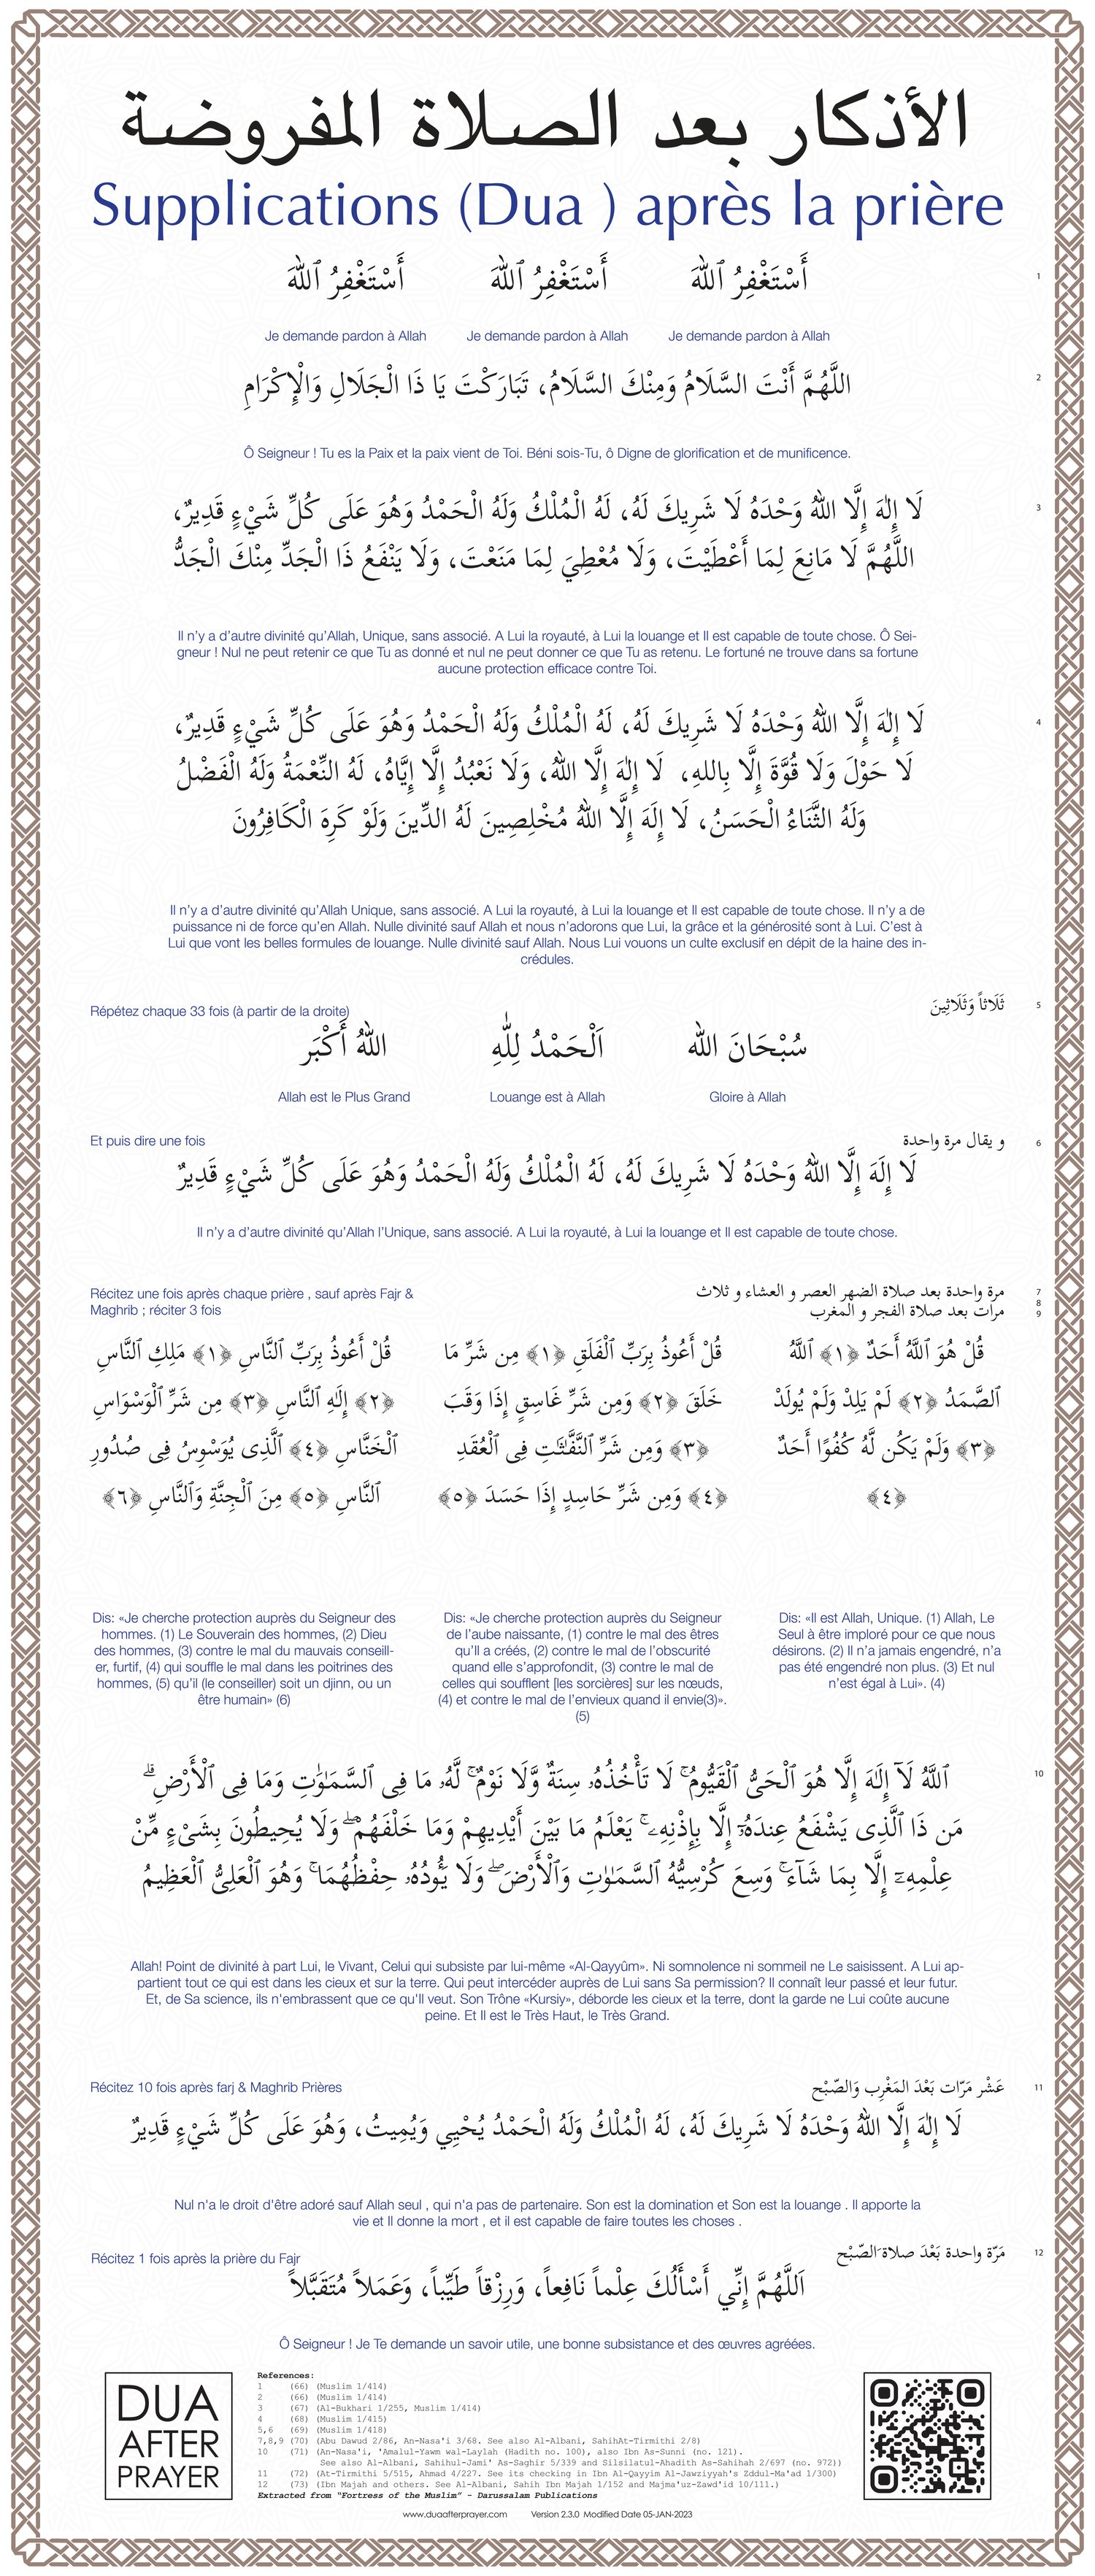 الأذكار بعد الصلاة المفروضة
Supplications (Dua ) après la prière
1
أَسْتَغْفِرُ ٱللّٰهَ أَسْتَغْفِرُ ٱللّٰهَ أَسْتَغْفِرُ ٱللّٰهَ
Je demande pardon à Allah Je demande pardon à Allah Je demande pardon à Allah
2
اللَّهُمَّ أَنْتَ السَّلَامُ وَمِنْكَ السَّلَامُ، تَبَارَكْتَ يَا ذَا الْجَلَالِ وَالْإِكْرَامِ
Ô Seigneur ! Tu es la Paix et la paix vient de Toi. Béni sois-Tu, ô Digne de glorification et de munificence.
3
لَا إِلٰهَ إِلَّا اللّٰهُ وَحْدَهُ لَا شَرِيكَ لَهُ، لَهُ الْمُلْكُ وَلَهُ الْحَمْدُ وَهُوَ عَلَى كُلِّ شَيْءٍ قَدِيرٌ،
اللَّهُمَّ لَا مَانِعَ لِمَا أَعْطَيْتَ، وَلَا مُعْطِيَ لِمَا مَنَعْتَ، وَلَا يَنْفَعُ ذَا الْجَدِّ مِنْكَ الْجَدُّ
Il n’y a d’autre divinité qu’Allah, Unique, sans associé. A Lui la royauté, à Lui la louange et Il est capable de toute chose. Ô Sei-
gneur ! Nul ne peut retenir ce que Tu as donné et nul ne peut donner ce que Tu as retenu. Le fortuné ne trouve dans sa fortune
aucune protection efficace contre Toi.
4
لَا إِلٰهَ إِلَّا اللّٰهُ وَحْدَهُ لَا شَرِيكَ لَهُ، لَهُ الْمُلْكُ وَلَهُ الْحَمْدُ وَهُوَ عَلَى كُلِّ شَيْءٍ قَدِيرٌ،
لَا حَوْلَ وَلَا قُوَّةَ إِلَّا بِاللهِ، لَا إِلٰهَ إِلَّا اللّٰهُ، وَلَا نَعْبُدُ إِلَّا إِيَّاهُ، لَهُ النِّعْمَةُ وَلَهُ الْفَضْلُ
وَلَهُ الثَّنَاءُ الْحَسَنُ، لَا إِلَهَ إِلَّا اللّٰهُ مُخْلِصِينَ لَهُ الدِّينَ وَلَوْ كَرِهَ الْكَافِرُونَ
Il n’y a d’autre divinité qu’Allah Unique, sans associé. A Lui la royauté, à Lui la louange et Il est capable de toute chose. Il n’y a de
puissance ni de force qu’en Allah. Nulle divinité sauf Allah et nous n’adorons que Lui, la grâce et la générosité sont à Lui. C’est à
Lui que vont les belles formules de louange. Nulle divinité sauf Allah. Nous Lui vouons un culte exclusif en dépit de la haine des in-
crédules.
5
ثَلَاثاً وَثَلَاثِينَ
Répétez chaque 33 fois (à partir de la droite)
سُبْحَانَ اللّٰه اَلْحَمْدُ لِلّٰهِ اللّٰهُ أَكْبَر
Allah est le Plus Grand Louange est à Allah Gloire à Allah
6
و يقال مرة واحدة
Et puis dire une fois
لَا إِلَهَ إِلَّا اللّٰهُ وَحْدَهُ لَا شَرِيكَ لَهُ، لَهُ الْمُلْكُ وَلَهُ الْحَمْدُ وَهُوَ عَلَى كُلِّ شَيْءٍ قَدِيرٌ
Il n’y a d’autre divinité qu’Allah l’Unique, sans associé. A Lui la royauté, à Lui la louange et Il est capable de toute chose.
7
8
9
مرة واحدة بعد صلاة الضهر العصر و العشاء و ثلاث
مرات بعد صلاة الفجر و المغرب
Récitez une fois après chaque prière , sauf après Fajr &
Maghrib ; réciter 3 fois
قُلْ هُوَ ٱللَّهُ أَحَدٌ ﴿١﴾ ٱللَّهُ
ٱلصَّمَدُ ﴿٢﴾ لَمْ يَلِدْ وَلَمْ يُولَدْ
﴿٣﴾ وَلَمْ يَكُن لَّهُ كُفُوًا أَحَدٌ
﴿٤﴾
قُلْ أَعُوذُ بِرَبِّ ٱلْفَلَقِ ﴿١﴾ مِن شَرِّ مَا
خَلَقَ ﴿٢﴾ وَمِن شَرِّ غَاسِقٍ إِذَا وَقَبَ
﴿٣﴾ وَمِن شَرِّ ٱلنَّفَّٰثَٰتِ فِى ٱلْعُقَدِ
﴿٤﴾ وَمِن شَرِّ حَاسِدٍ إِذَا حَسَدَ ﴿٥﴾
قُلْ أَعُوذُ بِرَبِّ ٱلنَّاسِ ﴿١﴾ مَلِكِ ٱلنَّاسِ
﴿٢﴾ إِلَٰهِ ٱلنَّاسِ ﴿٣﴾ مِن شَرِّ ٱلْوَسْوَاسِ
ٱلْخَنَّاسِ ﴿٤﴾ ٱلَّذِى يُوَسْوِسُ فِى صُدُورِ
ٱلنَّاسِ ﴿٥﴾ مِنَ ٱلْجِنَّةِ وَٱلنَّاسِ ﴿٦﴾
Dis: «Je cherche protection auprès du Seigneur des
hommes. (1) Le Souverain des hommes, (2) Dieu
des hommes, (3) contre le mal du mauvais conseill-
er, furtif, (4) qui souffle le mal dans les poitrines des
hommes, (5) qu’il (le conseiller) soit un djinn, ou un
être humain» (6)
Dis: «Je cherche protection auprès du Seigneur
de l’aube naissante, (1) contre le mal des êtres
qu’Il a créés, (2) contre le mal de l’obscurité
quand elle s’approfondit, (3) contre le mal de
celles qui soufflent [les sorcières] sur les nœuds,
(4) et contre le mal de l’envieux quand il envie(3)».
(5)
Dis: «Il est Allah, Unique. (1) Allah, Le
Seul à être imploré pour ce que nous
désirons. (2) Il n’a jamais engendré, n’a
pas été engendré non plus. (3) Et nul
n’est égal à Lui». (4)
10
ٱللَّهُ لَآ إِلَٰهَ إِلَّا هُوَ ٱلْحَىُّ ٱلْقَيُّومُ ۚ لَا تَأْخُذُهُۥ سِنَةٌ وَّلَا نَوْمٌ ۚ لَّهُۥ مَا فِى ٱلسَّمَٰوَٰتِ وَمَا فِى ٱلْأَرْضِ ۗ
مَن ذَا ٱلَّذِى يَشْفَعُ عِندَهُۥٓ إِلَّا بِإِذْنِهِۦ ۚ يَعْلَمُ مَا بَيْنَ أَيْدِيهِمْ وَمَا خَلْفَهُمْ ۖ وَلَا يُحِيطُونَ بِشَىْءٍ مِّنْ
عِلْمِهِۦٓ إِلَّا بِمَا شَآءَ ۚ وَسِعَ كُرْسِيُّهُ ٱلسَّمَٰوَٰتِ وَٱلْأَرْضَ ۖ وَلَا يَـُٔودُهُۥ حِفْظُهُمَا ۚ وَهُوَ ٱلْعَلِىُّ ٱلْعَظِيمُ
Allah! Point de divinité à part Lui, le Vivant, Celui qui subsiste par lui-même «Al-Qayyûm». Ni somnolence ni sommeil ne Le saisissent. A Lui ap-
partient tout ce qui est dans les cieux et sur la terre. Qui peut intercéder auprès de Lui sans Sa permission? Il connaît leur passé et leur futur.
Et, de Sa science, ils n'embrassent que ce qu'Il veut. Son Trône «Kursiy», déborde les cieux et la terre, dont la garde ne Lui coûte aucune
peine. Et Il est le Très Haut, le Très Grand.
11
عَشْر مَرّات بَعْدَ المَغْرِب وَالصّبْح
Récitez 10 fois après farj & Maghrib Prières
لَا إِلٰهَ إِلَّا اللّٰهُ وَحْدَهُ لَا شَرِيكَ لَهُ، لَهُ الْمُلْكُ وَلَهُ الْحَمْدُ يُحْيِي وَيُمِيتُ، وَهُوَ عَلَى كُلِّ شَيْءٍ قَدِيرٌ
Nul n'a le droit d'être adoré sauf Allah seul , qui n'a pas de partenaire. Son est la domination et Son est la louange . Il apporte la
vie et Il donne la mort , et il est capable de faire toutes les choses .
12
مَرّة واحدة بَعْدَ صلاة َالصّبْح
Récitez 1 fois après la prière du Fajr
اَللَّهُمَّ إِنِّي أَسْأَلُكَ عِلْماً نَافِعاً، وَرِزْقاً طَيِّباً، وَعَمَلاً مُتَقَبَّلاً
Ô Seigneur ! Je Te demande un savoir utile, une bonne subsistance et des œuvres agréées.
DUA
AFTER
PRAYER
References:
1 (66) (Muslim 1/414)
2 (66) (Muslim 1/414)
3 (67) (Al-Bukhari 1/255, Muslim 1/414)
4 (68) (Muslim 1/415)
5,6 (69) (Muslim 1/418)
7,8,9 (70) (Abu Dawud 2/86, An-Nasa'i 3/68. See also Al-Albani, SahihAt-Tirmithi 2/8)
10 (71) (An-Nasa'i, 'Amalul-Yawm wal-Laylah (Hadith no. 100), also Ibn As-Sunni (no. 121).
See also Al-Albani, Sahihul-Jami' As-Saghir 5/339 and Silsilatul-Ahadith As-Sahihah 2/697 (no. 972))
11 (72) (At-Tirmithi 5/515, Ahmad 4/227. See its checking in Ibn Al-Qayyim Al-Jawziyyah's Zddul-Ma'ad 1/300)
12 (73) (Ibn Majah and others. See Al-Albani, Sahih Ibn Majah 1/152 and Majma'uz-Zawd'id 10/111.)
Extracted from “Fortress of the Muslim” - Darussalam Publications
www.duaafterprayer.com Version 2.3.0 Modified Date 05-JAN-2023